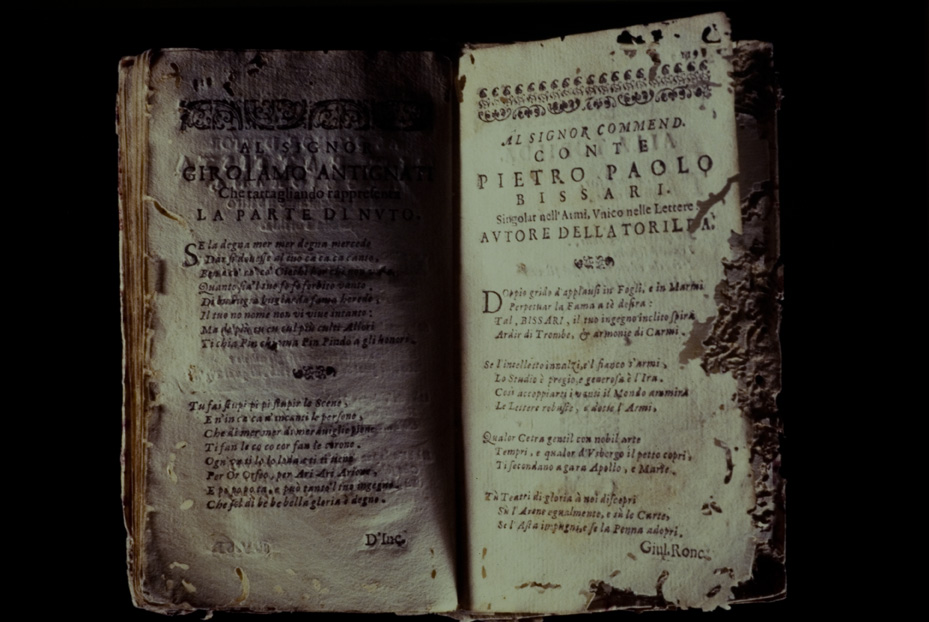 AL SIGNOR
GIROLAMO ANTIGNATI
Che tartagliando rappresenta
LA PARTE DI NVTO.
SE la degna mer mer degna mercede
Quanto
Il tuo no nome non vi viue intanto:
Ma culpiù culti Allori
Ti chia Pin Pindo a gli honori.
Tu fai stupi pi pì stupir le Scene,
E n'in ca ca d'incanti le persone,
Che di mer mer di merauiglie piene
Ti fan le co co cor fan le corone.
Per Or Orfeo, per Ari Ari Arione,
può tanto'l tuo ingegno
Che sol di be be bella gloria è degno.
D'Inc.
AL SIGNOR COMMEND.
CONTE
PIETRO PAOLO
BISSARI.
Singolar nell'Armi, Vnico nelle Lettere
AVTORE DELLA TORILDA.
Doppio grido d'applausi in Fogli, e in Marmi
Perpetuar la Fama a tè desira:
Tal, BISSARI, il tuo ingegno inclito spira
Ardir di Trombe, & armonie di Carmi.
Se l'intelletto inualzi, e'l fianco t'armi,
Lo Studio è pregio, e generosa è l'Ira.
Così accoppiarti i vanti il Mondo ammira
Le Lettere robuste, e dotte l'Armi,
Qualor Cetra gentil con nobil arte
Tempri, e qualor d'Vsbergo il petto copri,
Ti secondano a gara Apollo, e Marte.
Tù Teatri di gloria à noi discopri
Sù l'Arene egualmente, e sù le Carte,
Se l'Asta impugni, e se la Penna adopri.
Giul. Ronc.